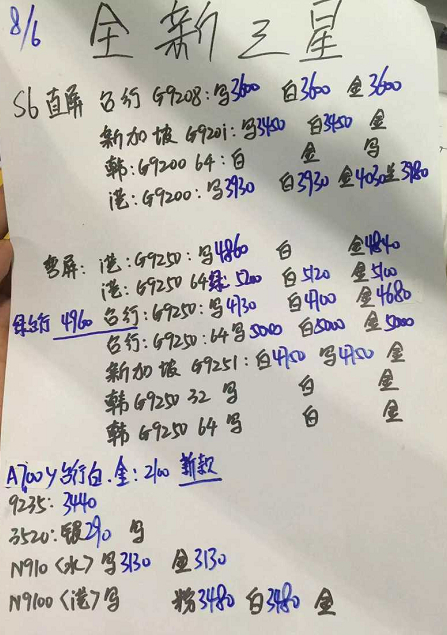 8/6 全新三星
S6 直屏 台行 G9208:号3600 白3600 金3600
新加坡 G920i:号3450 白3450 金
韩:G9200 64:白 金 号
港:G9200:号3930 白3930 金4030 兰3980
弯屏:港:G9250:号4860 白 金4840
港:G9250 64绿5200 白5120 金5100
绿台行 4960 台行:G9250:号4730 白4700 金4680
台行:G9250:64号5000 白5000 金5000
新加坡 G9251:白4750 号4750 金
韩 G9250 32 号 白 金
韩 G9250 64 号 白 金
A700y台行白.金:2100 新款
9235:3440
3520:银290 号
N910<水>号3130 金3130
N9100<港>号 粉3480 白3480 金